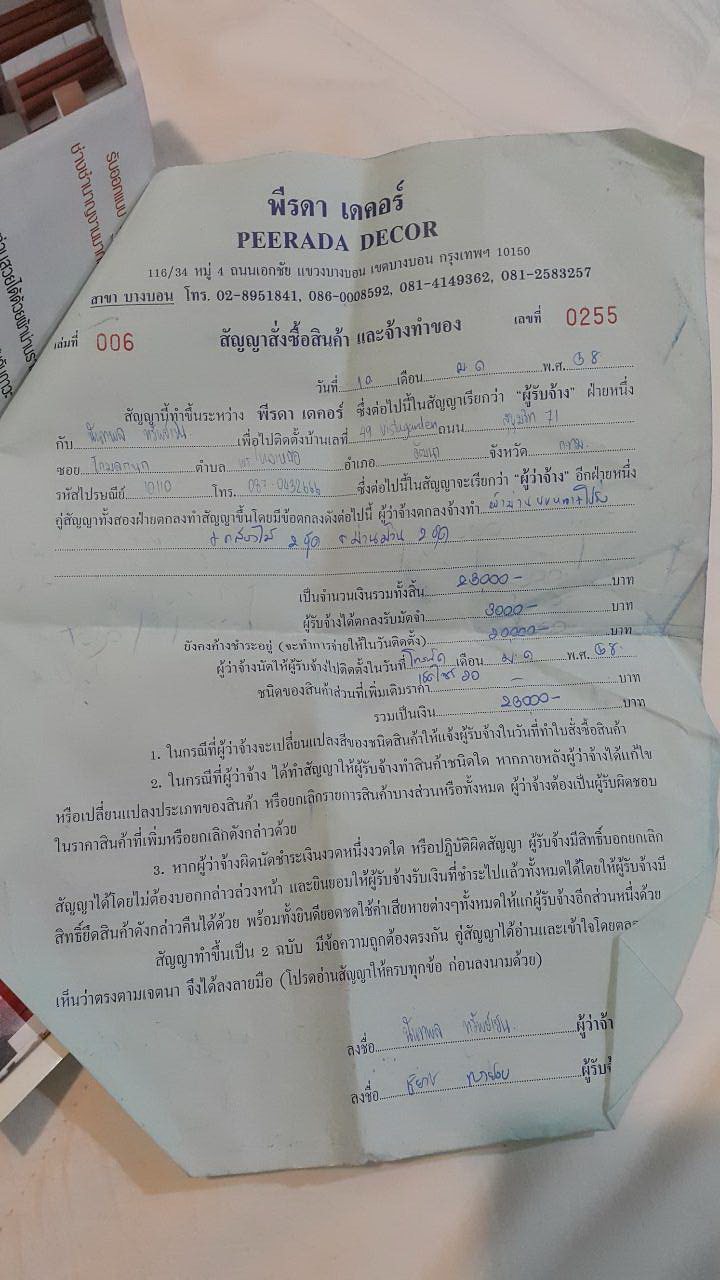 รับออกแบบ
ช่างชำนาญงานมา
พีรดา เดคอร์
PEERADA DECOR
116/34 หมู่ 4 ถนนเอกชัย แขวงบางบอน เขตบางบอน กรุงเทพฯ 10150
สาขา บางบอน โทร. 02-8951841, 086-0008592, 081-4149362, 081-2583257
เล่มที่ 006 สัญญาสั่งซื้อสินค้า และจ้างทำของ เลขที่ 0255
วันที่ 10 เดือน ม.ค พ.ศ. 58
สัญญานี้ทำขึ้นระหว่าง พีรดา เดคอร์ ซึ่งต่อไปนี้ในสัญญาเรียกว่า "ผู้รับจ้าง" ฝ่ายหนึ่ง
กับ เพื่อไปติดตั้งบ้านเลขที่ 49 ถนน สุขุมวิท 71
ซอย ตำบล อำเภอ วัฒนา จังหวัด กทม.
รหัสไปรษณีย์ 10110 โทร. 087-0432666 ซึ่งต่อไปนี้ในสัญญาจะเรียกว่า "ผู้ว่าจ้าง" อีกฝ่ายหนึ่ง
คู่สัญญาทั้งสองฝ่ายตกลงทำสัญญาขึ้นโดยมีข้อตกลงดังต่อไปนี้ ผู้ว่าจ้างตกลงจ้างทำ ผ้าม่าน
2 ชุด ม่านม้วน 2 ชุด
เป็นจำนวนเงินรวมทั้งสิ้น 23000- บาท
ผู้รับจ้างได้ตกลงรับมัดจำ 3000- บาท
ยังคงค้างชำระอยู่ (จะทำการจ่ายให้ในวันติดตั้ง) 20000- บาท
ผู้ว่าจ้างนัดให้ผู้รับจ้างไปติดตั้งในวันที่ เดือน ม.ค พ.ศ. 58
ชนิดของสินค้าส่วนที่เพิ่มเติมราคา - บาท
รวมเป็นเงิน 23000- บาท
1. ในกรณีที่ผู้ว่าจ้างจะเปลี่ยนแปลงสีของชนิดสินค้าให้แจ้งผู้รับจ้างในวันที่ทำใบสั่งซื้อสินค้า
2. ในกรณีที่ผู้ว่าจ้าง ได้ทำสัญญาให้ผู้รับจ้างทำสินค้าชนิดใด หากภายหลังผู้ว่าจ้างได้แก้ไข
หรือเปลี่ยนแปลงประเภทของสินค้า หรือยกเลิกรายการสินค้าบางส่วนหรือทั้งหมด ผู้ว่าจ้างต้องเป็นผู้รับผิดชอบ
ในราคาสินค้าที่เพิ่มหรือยกเลิกดังกล่าวด้วย
3. หากผู้ว่าจ้างผิดนัดชำระเงินงวดหนึ่งงวดใด หรือปฏิบัติผิดสัญญา ผู้รับจ้างมีสิทธิ์บอกยกเลิก
สัญญาได้โดยไม่ต้องบอกกล่าวล่วงหน้า และยินยอมให้ผู้รับจ้างรับเงินที่ชำระไปแล้วทั้งหมดได้โดยให้ผู้รับจ้างมี
สิทธิ์ยึดสินค้าดังกล่าวคืนได้ด้วย พร้อมทั้งยินดียอดชดใช้ค่าเสียหายต่างๆทั้งหมดให้แก่ผู้รับจ้างอีกส่วนหนึ่งด้วย
สัญญาทำขึ้นเป็น 2 ฉบับ มีข้อความถูกต้องตรงกัน คู่สัญญาได้อ่านและเข้าใจโดยตลอ
เห็นว่าตรงตามเจตนา จึงได้ลงลายมือ (โปรดอ่านสัญญาให้ครบทุกข้อ ก่อนลงนามด้วย)
ลงชื่อ ผู้ว่าจ้า
ลงชื่อ ผู้รับจ้